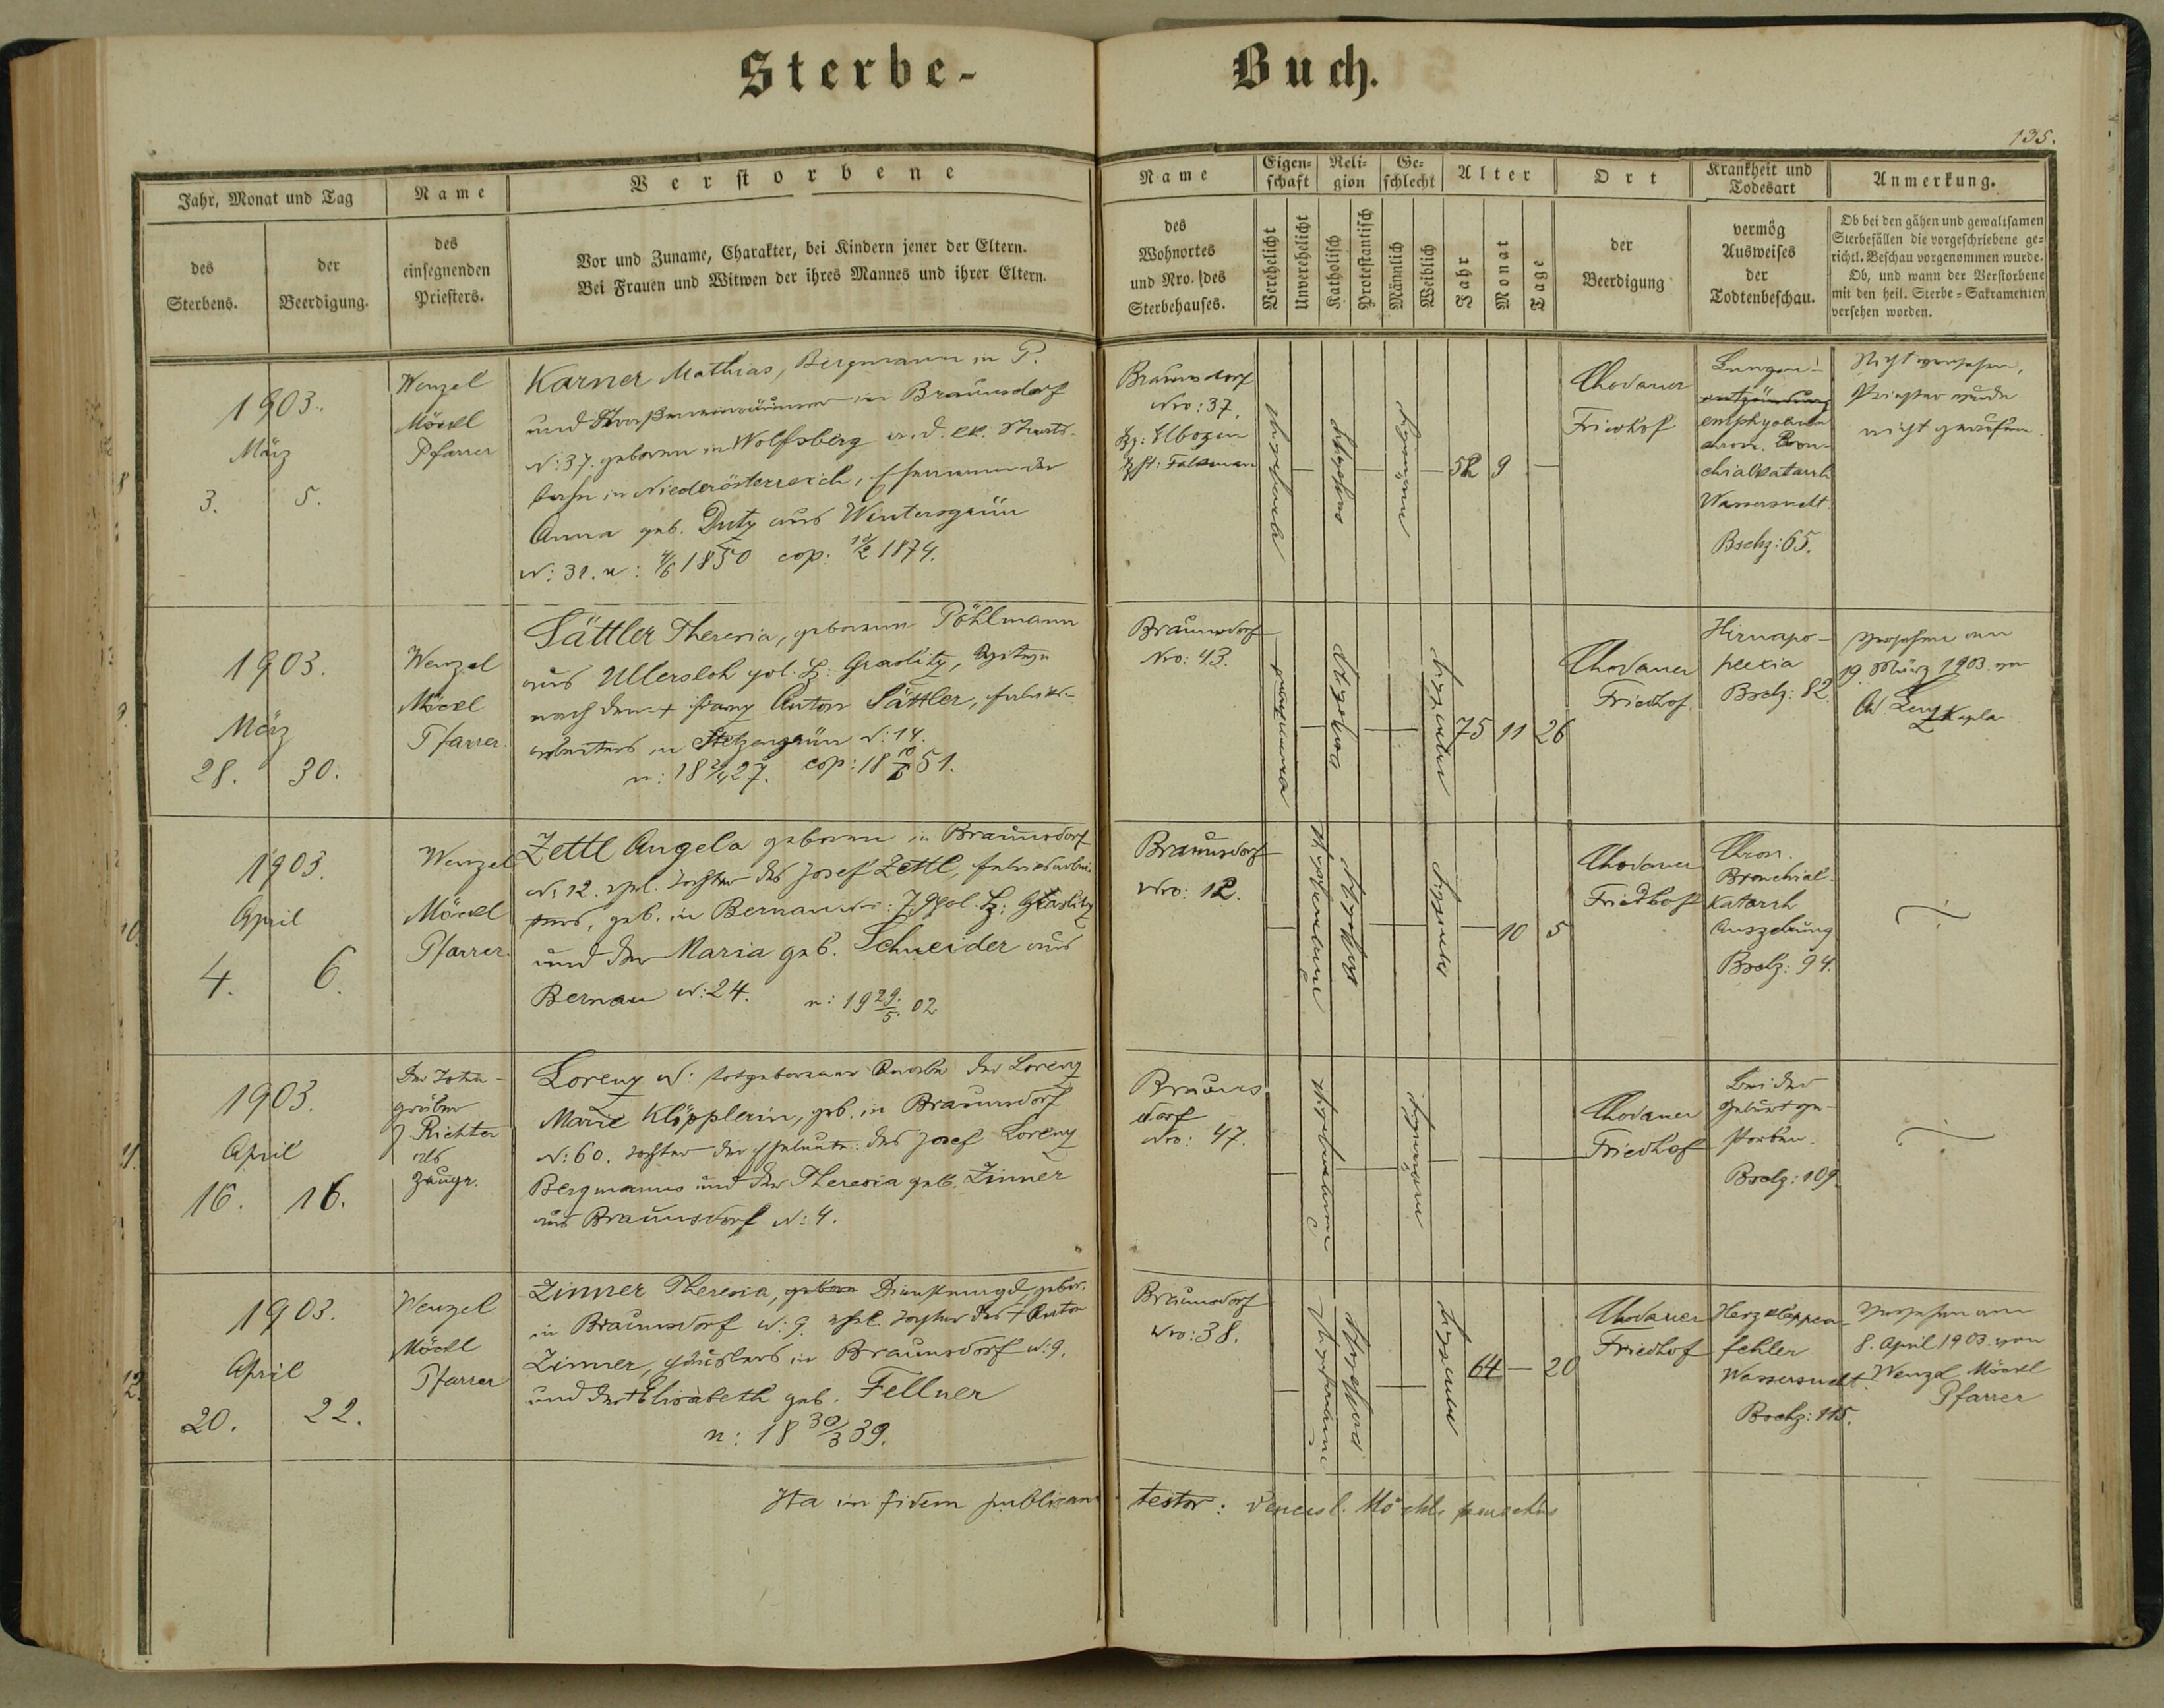 Sterbe-
Buch.
135.
Jahr, Monat und Tag
des
Sterbens.
der
Beerdigung.
Name
des
einsegnenden
Priesters.
Verstorbene
Vor und Zuname, Charakter, bei Kindern jener der Eltern.
Bei Frauen und Witwen der ihres Mannes und ihrer Eltern.
Name
des
Wohnortes
und Nro. des
Sterbehauses.
Eigen-
schaft
Verehelicht
Unverehelicht
Reli-
gion
Katholisch
Protestantisch
Ge-
schlecht
Männlich
Weiblich
Alter
Jahr
Monat
Tage
Ort
der
Beerdigung
Krankheit und
Todesart
vermög
Ausweises
der
Todtenbeschau.
Anmerkung.
Ob bei den gähen und gewaltsamen
Sterbefällen die vorgeschriebene ge-
richtl. Beschau vorgenommen wurde.
Ob, und wann der Verstorbene
mit den heil. Sterbe-Sakramenten
versehen worden.
8
1903.
März
3. 5.
Wenzel
Möckl
Pfarrer
Karner Mathias, Bergmann in P.
und in Braunsdorf
N: 37. geboren in Wolfsberg a. d. Staats-
bahn in Niederösterreich, Ehemann der
Anna geb. Dutz aus Wintersgrün
N: 31. n: 4/6 1850 cop: 10/2 1874.
Braunsdorf
Nro: 37.
Bz: Elbogen
Falkenau
verehelicht
katholisch
männlich
52 9 —
Chodauer
Friedhof
Lungen-
entzündung
emphysem
chron. Bron-
chialkatarrh
Wassersucht
Bschz: 65.
Nicht versehen,
Priester wurde
nicht gerufen.
9.
1903.
März
28. 30.
Wenzel
Möckl
Pfarrer.
Sättler Theresia, geborene Pöhlmann
aus Ullersloh pol. Bz: Graslitz, Witwe
nach dem + Franz Anton Sättler, Fabriks-
arbeiters in Stelzengrün N: 14.
n: 18 2/4 27. cop: 18 10/6 51.
Braunsdorf
Nro: 43.
katholisch
weiblich
75 11 26
Chodauer
Friedhof.
Hirnapo-
plexia
Bschz: 82.
Versehen am
19. März 1903. von
Kaplan
10.
1903.
April
4. 6.
Wenzel
Möckl
Pfarrer.
Zettl Angela geboren in Braunsdorf
N: 12. ehel. Tochter des Josef Zettl, Fabriksarbei-
ters, geb. in Bernau N: 79 pol. Bz: Graslitz
und der Maria geb. Schneider aus
Bernau N: 24. n: 19 29/5. 02
Braunsdorf
Nro: 12.
katholisch
weiblich
— 10 5
Chodauer
Friedhof
Chron.
Bronchial-
Katarrh
Auszehrung
Bschz: 94.
11.
1903.
April
16. 16.
Der Toten-
gräber
J. Richter
als
Zeuge.
Lorenz N: totgeborener Knabe der Lorenz
Marie Klöpplerin, geb. in Braunsdorf
N: 60. Tochter der Eheleute: des Josef Lorenz
Bergmanns und der Theresia geb. Zinner
aus Braunsdorf N: 4.
Brauns
dorf
Nro: 47.
männlich
Chodauer
Friedhof
Bei der
Geburt ge-
storben.
Bschz: 109.
12.
1903.
April
20. 22.
Wenzel
Möckl
Pfarrer
Zinner Theresia, Dienstmagd, gebor.
in Braunsdorf N: 9. ehel. Tochter des + Anton
Zinner, Häuslers in Braunsdorf N: 9.
und der + Elisabeth geb. Fellner
n: 18 30/3 39.
Braunsdorf
Nro: 38.
katholisch
weiblich
64 — 20
Chodauer
Friedhof
Herzklappen-
fehler
Wassersucht.
Bschz: 115.
Versehen am
8. April 1903. von
Wenzel Möckl
Pfarrer
Ita in fidem publicam testor: Vencesl. Möckl, parochus